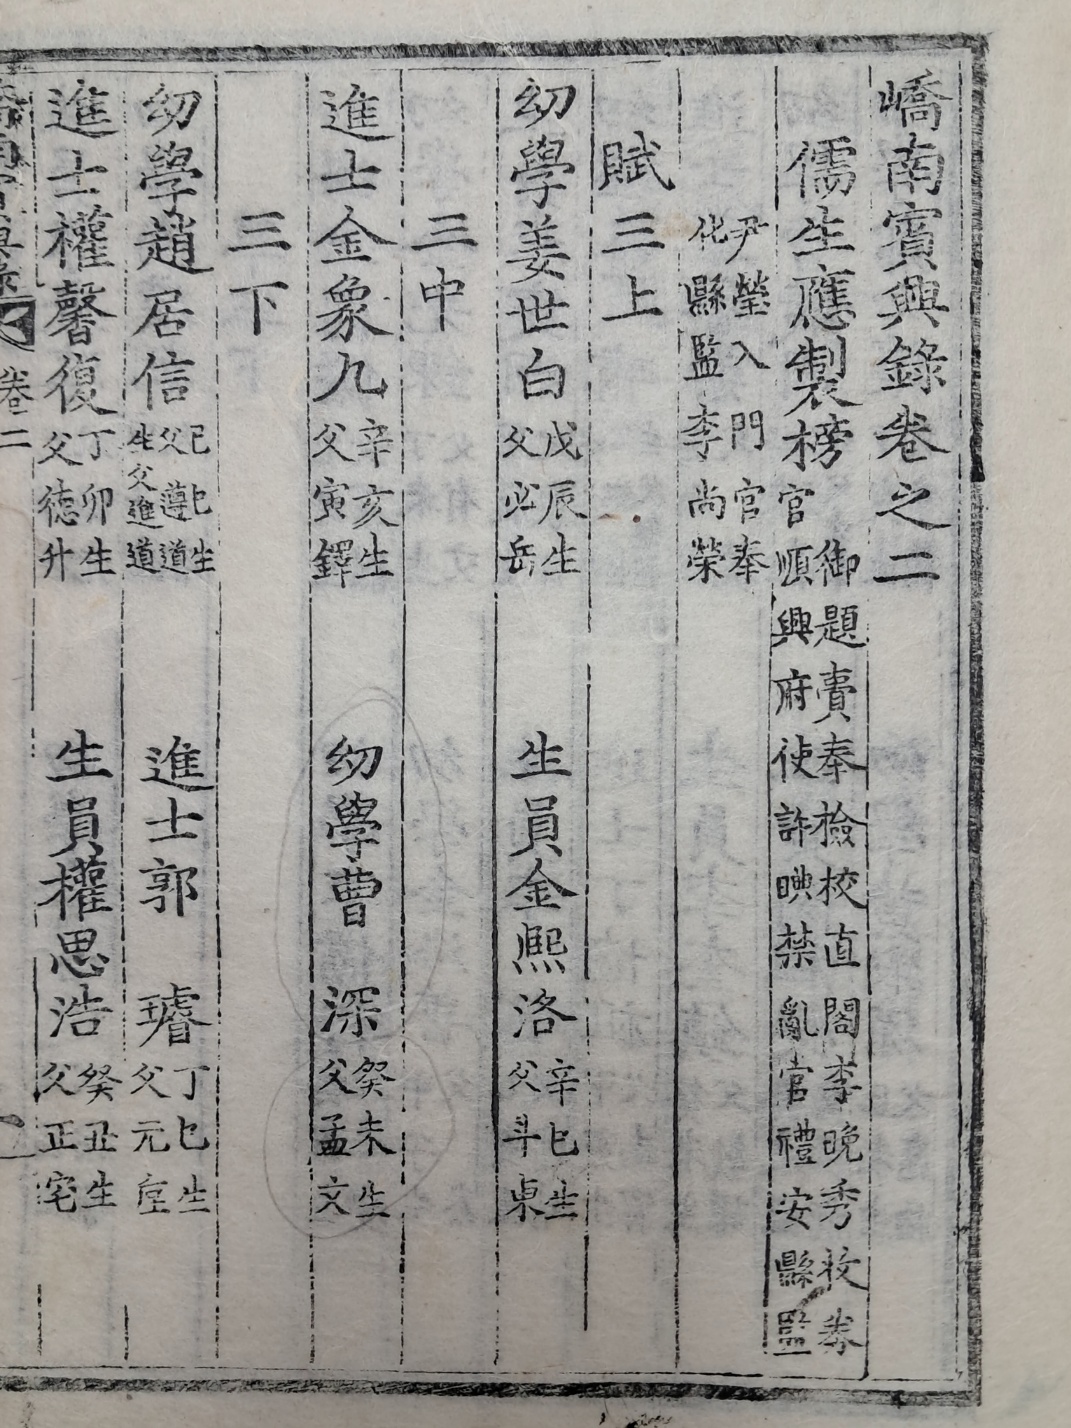 嶠南賓興錄卷之二
儒生應製榜
御題賷奉檢校直閣李晚秀收券
官順興府使許㬌禁亂官禮安縣監
尹瑩入門官奉
化縣監李尚榮
賦三上
幼學姜世白
戊辰生
父必岳
生員金熙洛
辛巳生
父斗東
三中
進士金象九
辛亥生
父寅鐸
幼學曹深
癸未生
父孟文
三下
幼學趙居信
己巳生
父遵道
生父進道
進士郭璿
丁巳生
父元垕
進士權馨復
丁卯生
父德升
生員權思浩
癸丑生
父正宅
卷二